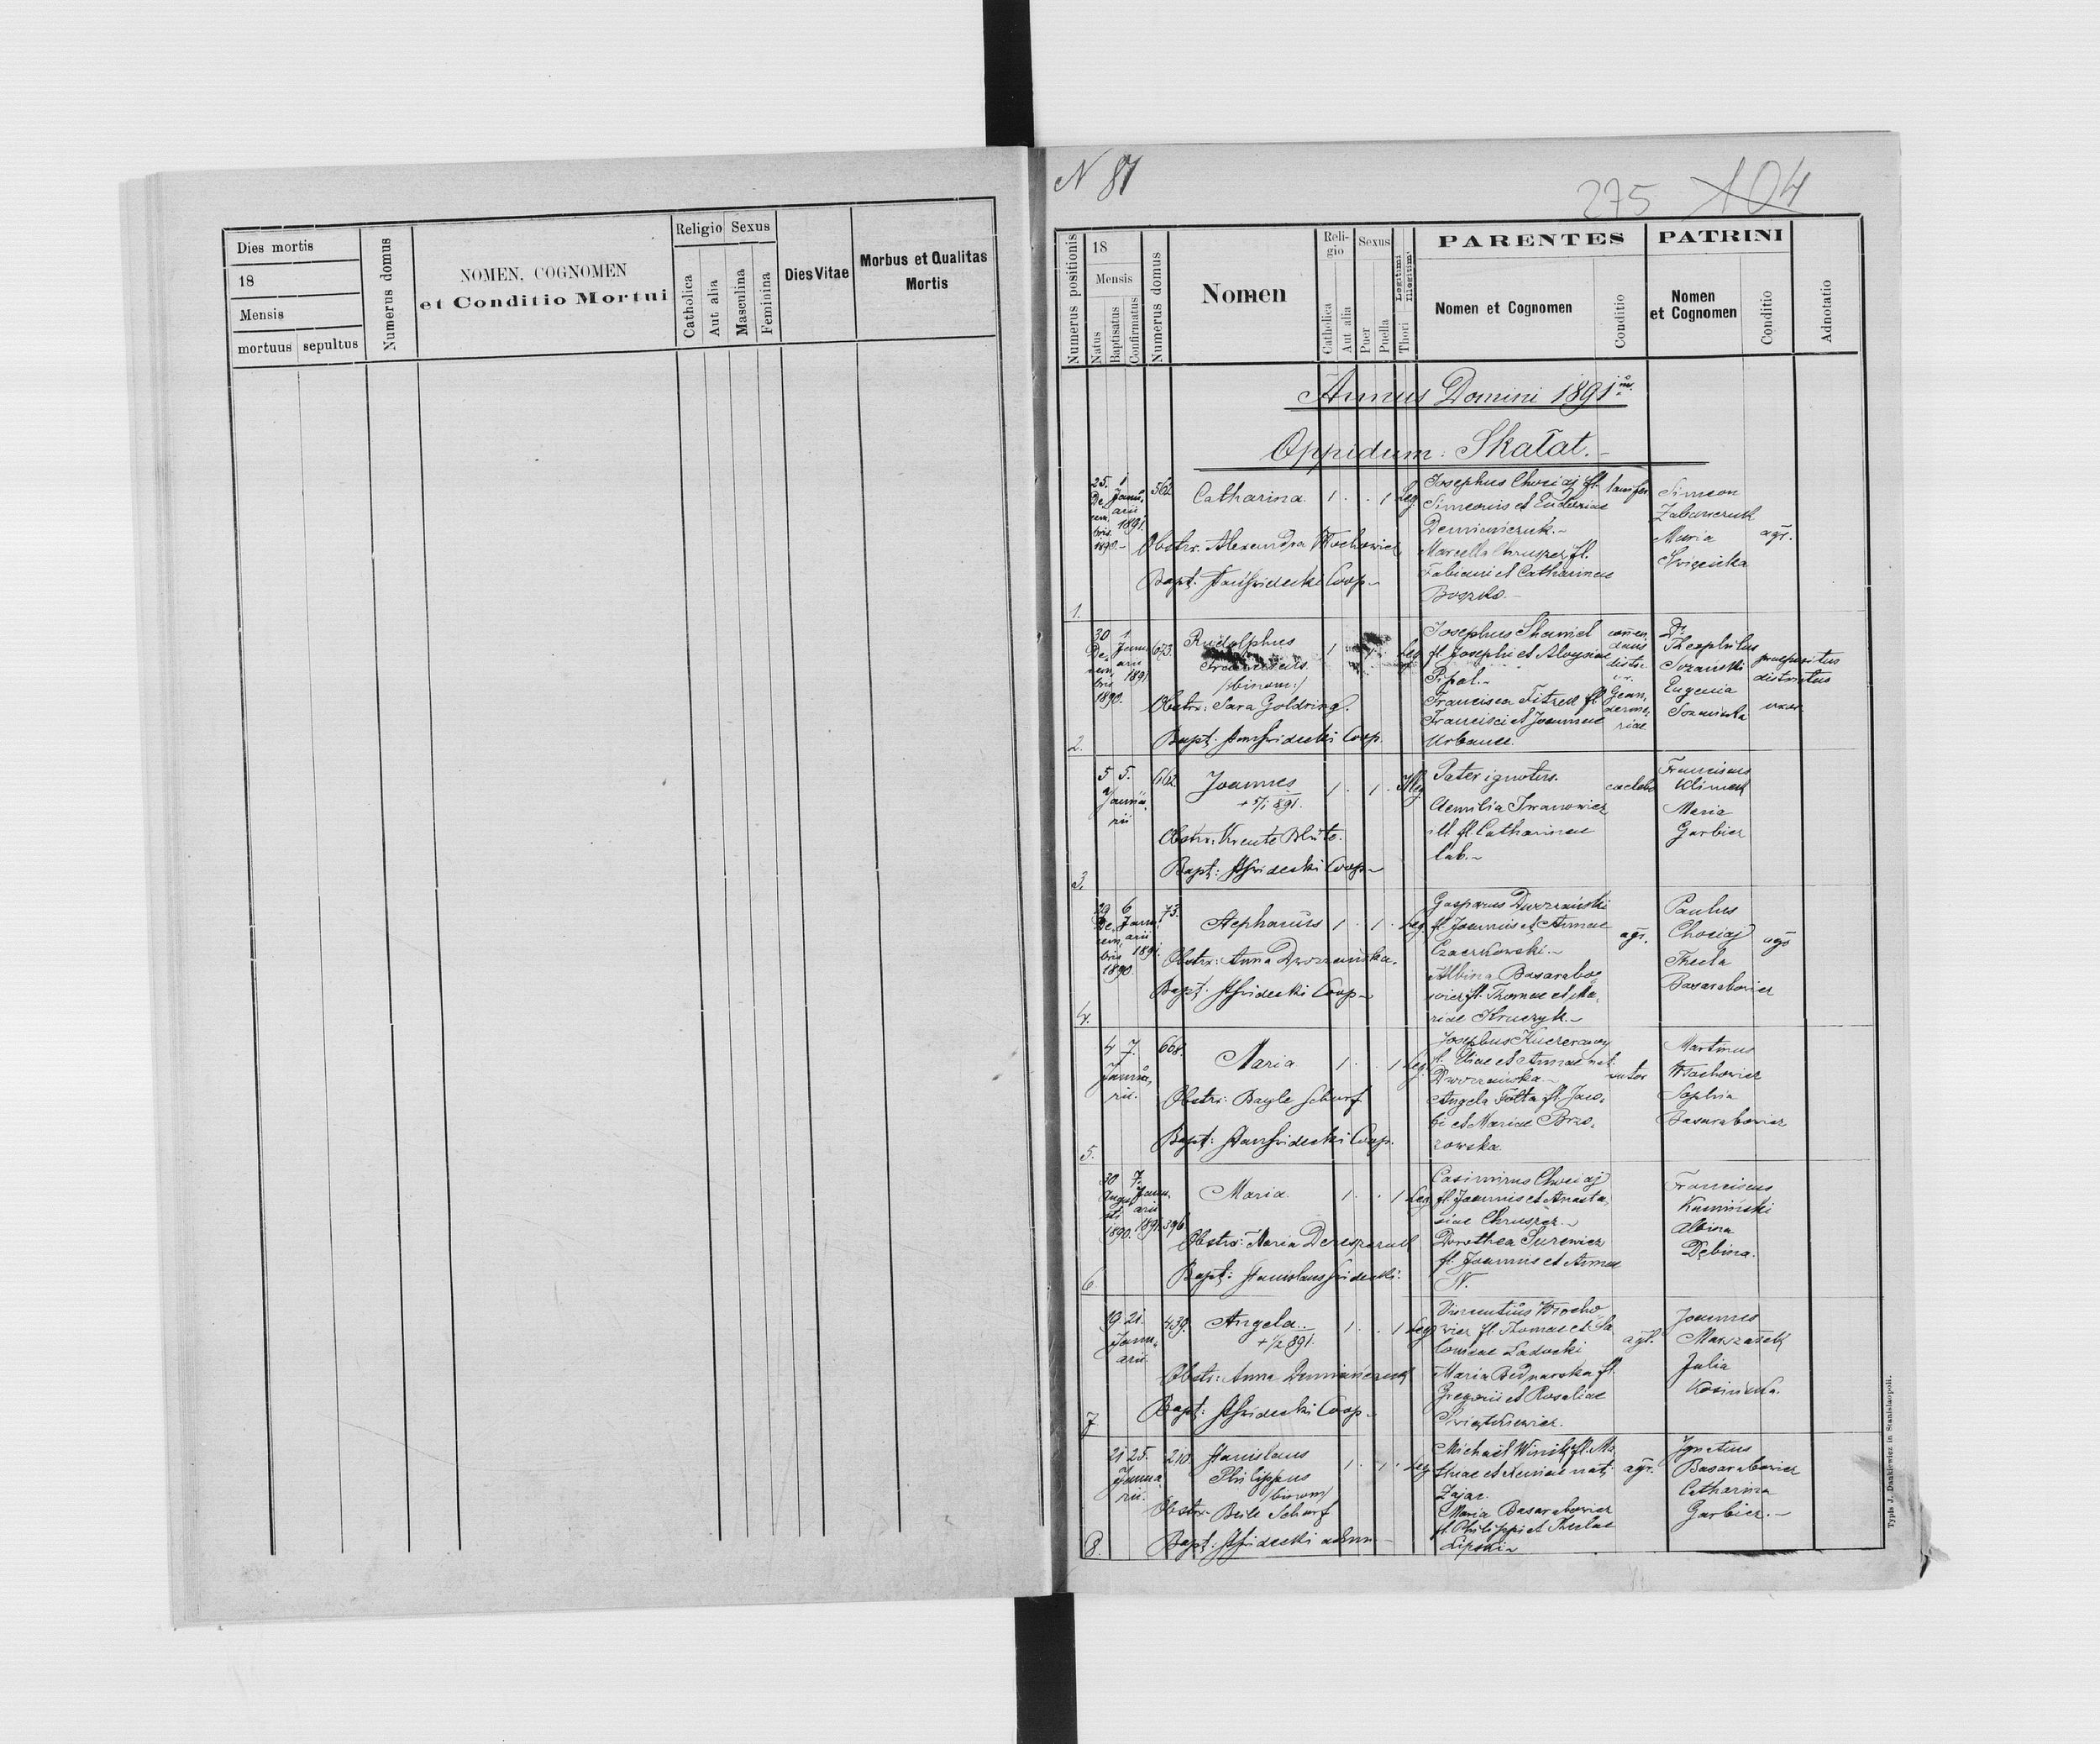 Dies mortis
18
Mensis
mortuus sepultus
Numerus domus
NOMEN, COGNOMEN
et Conditio Mortui
Religio Sexus
Catholica
Aut alia
Masculina
Feminina
Dies Vitae
Morbus et Qualitas
Mortis
N 81
275 104
Numerus positionis
18
Mensis
Natus
Baptisatus
Confirmatus
Numerus domus
Nomen
Reli-
gio
Catholica
Aut alia
Sexus
Puer
Puella
Legitimi
Illegitimi
Thori
PARENTES
Nomen et Cognomen
Conditio
PATRINI
Nomen
et Cognomen
Conditio
Adnotatio
Annus Domini 1891
Oppidum: Skałat.
1.
25. 1
De Janu
cem arii
bris 1891.
1890.
562.
Catharina 1 . . 1 Leg.
Obstr. Alexandra Wochowicz
Bapt. Coop.
Josephus Chociaj fl.
Simeonis et Eudoxiae
Demiańczuk.
Marcella Chruszcz fl.
Fabiani et Catharinae
Boczko.
Simeon
Maria
Święcicka
agr.
2.
30 1
De Janu
cem arii
bris 1891
1890.
673.
Rudolphus
Franciscus
/binom:/
1 Leg
Obstr: Sara Goldring.
Bapt: Coop.
Josephus
fl. Josephi et Aloysiae
Pipal.
Francisca fl.
Francisci et Joannae
Urbanec.
Dr
Theophilus
Eugenia
praepositus
districtus
uxor
3.
5 5.
Janua
rii
662.
Joannes
+ 5/1 891.
1 . 1 . Illeg
Obstr:
Bapt: Coop
Pater ignotus.
Aemilia Iwanowicz
ill. fl. Catharinae
lab.
caelebs
Franciscus
Klimek
Maria
Garbicz
4.
29 6
De Janu
cem arii
bris 1891.
1890.
73.
Stephanus 1 . 1 . Leg.
Obstr: Anna Dworzańska.
Bapt: Coop
Gasparus Dworzański
fl. Joannis et Annae
Czaczkowski.
Albina Basarabo
wicz fl. Thomae et Ma
riae Kruczyk.
agr.
Paulus
Chociaj
Thecla
Basarabowicz
agr
5.
4 7.
Janua
rii.
668.
Maria 1 . . 1 Leg.
Obstr: Bayle Scharf
Bapt: Coop.
Josephus Kucerawy
fl. Eliae et Annae nat:
Dworzańska.
Angela Fołta fl. Jaco
bi et Mariae Brzo
zowska.
sutor
Martinus
Wochowicz
Sophia
Basarabowicz
6
30 7.
Augus Janu
sti arii
1890. 1891.
396
Maria 1 . . 1 Leg
Obstr: Maria
Bapt: Stanislaus
Casimirus Chociaj
fl. Joannis et Anasta
siae Chruszcz.
Dorothea Surewicz
fl. Joannis et Annae
N.
Franciscus
Kamiński
Albina
Dębina.
7
19 21.
Janu
arii.
439.
Angela
+ 1/2 891.
1 . . 1 Leg
Obstr: Anna Demiańczuk
Bapt: Coop
Vincentius Wocho
wicz fl. Thomae et Sa
lomeae Sadecki
Maria Bednarska fl.
Gregorii et Rosaliae
Świątkiewicz.
agr.
Joannes
Marszałek
Julia
8.
21 25.
Janua
rii.
210.
Stanislaus
Philippus
/binom/
1 . 1 . Leg
Obstr: Beile Scharf
Bapt:
Michael Winik fl. Ma
thiae et Xeniae nat:
Zając.
Maria Basarabowicz
fl. Philippi et Theclae
Lipski
agr.
Ignatius
Basarabowicz
Catharina
Garbicz.
Typis J. Dankiewicz in Stanislaopoli.